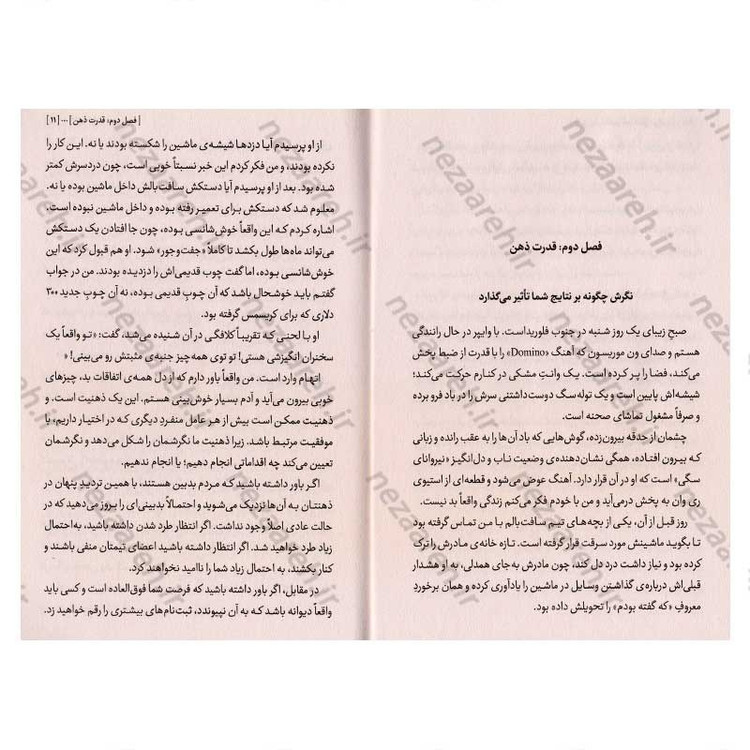 فصل دوم: قدرت ذهن
نگرش چگونه بر نتایج شما تأثیر می‌گذارد
صبح زیبای یک روز شنبه در جنوب فلوریداست. با وایپر در حال رانندگی
هستم و صدای ون موریسون که آهنگ «Domino» را با قدرت از ضبط پخش
می‌کند، فضا را پر کرده است. یک وانتِ مشکی در کنارم حرکت می‌کند؛
شیشه‌اش پایین است و یک توله‌سگ دوست‌داشتنی سرش را در باد فرو برده
و صرفاً مشغول تماشای صحنه است.
چشمان از حدقه بیرون‌زده، گوش‌هایی که باد آن‌ها را به عقب رانده و زبانی
که بیرون افتاده، همگی نشان‌دهنده‌ی وضعیت ناب و دل‌انگیز «نیروانای
سگی» است که او در آن قرار دارد. آهنگ عوض می‌شود و قطعه‌ای از استیوی
ری وان به پخش درمی‌آید و من با خودم فکر می‌کنم زندگی واقعاً بد نیست.
روز قبل از آن، یکی از بچه‌های تیم سافت‌بالم با من تماس گرفته بود
تا بگوید ماشینش مورد سرقت قرار گرفته است. تازه خانه‌ی مادرش را ترک
کرده بود و نیاز داشت درد دل کند، چون مادرش به جای همدلی، به او هشدار
قبلی‌اش درباره‌ی گذاشتن وسایل در ماشین را یادآوری کرده و همان برخوردِ
معروفِ «که گفته بودم» را تحویلش داده بود.
[ فصل دوم: قدرت ذهن ] ... [ ۱۱ ]
از او پرسیدم آیا دزدها شیشه‌ی ماشین را شکسته بودند یا نه. این کار را
نکرده بودند، و من فکر کردم این خبر نسبتاً خوبی است، چون دردسرش کمتر
شده بود. بعد از او پرسیدم آیا دستکش سافت بالش داخل ماشین بوده یا نه.
معلوم شد که دستکش برای تعمیر رفته بوده و داخل ماشین نبوده است.
اشاره کردم که این واقعاً خوش‌شانسی بوده، چون جا افتادن یک دستکش
می‌تواند ماه‌ها طول بکشد تا کاملاً «جفت‌وجور» شود. او هم قبول کرد که این
خوش‌شانسی بوده، اما گفت چوب قدیمی‌اش را دزدیده بودند. من در جواب
گفتم باید خوشحال باشد که آن چوبِ قدیمی بوده، نه آن چوبِ جدید ۳۰۰
دلاری که برای کریسمس گرفته بود.
او با لحنی که تقریباً کلافگی در آن شنیده می‌شد، گفت: «تو واقعاً یک
سخنران انگیزشی هستی! تو توی همه‌چیز جنبه‌ی مثبتش رو می‌بینی! »
اتهام وارد است. من واقعاً باور دارم که از دل همه‌ی اتفاقات بد، چیزهای
خوبی بیرون می‌آید و آدم بسیار خوش‌بینی هستم. این یک ذهنیت است، و
ذهنیت ممکن است بیش از هر عامل منفردِ دیگری که در اختیار داریم، با
موفقیت مرتبط باشد. زیرا ذهنیت ما نگرشمان را شکل می‌دهد و نگرشمان
تعیین می‌کند چه اقداماتی انجام دهیم؛ یا انجام ندهیم.
اگر باور داشته باشید که مردم بدبین هستند، با همین تردیدِ پنهان در
ذهنتان به آن‌ها نزدیک می‌شوید و احتمالاً بدبینی‌ای را بروز می‌دهید که در
حالت عادی اصلاً وجود نداشت. اگر انتظار طرد شدن داشته باشید، به‌احتمال
زیاد طرد خواهید شد. اگر انتظار داشته باشید اعضای تیمتان منفی باشند و
کنار بکشند، به احتمال زیاد شما را ناامید نخواهند کرد.
در مقابل، اگر باور داشته باشید که فرصت شما فوق‌العاده است و کسی باید
واقعاً دیوانه باشد که به آن نپیوندد، ثبت‌نام‌های بیشتری را رقم خواهید زد.
nezaareh.ir